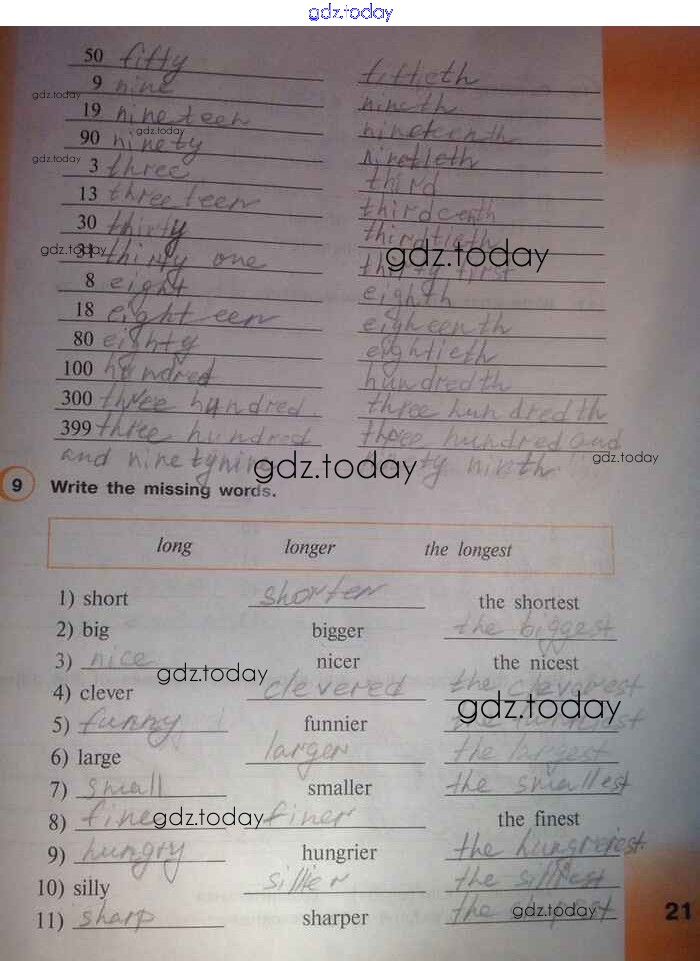 gdz.today
50 fifty fiftieth
9 nine nineth
gdz.today
19 nineteen nineteenth
gdz.today
90 ninety ninetieth
gdz.today
3 three third
13 threeteen thirdcenth
30 thirty thirdtieth
gdz.today
31 thirty one thirty first
gdz.today
8 eight eighth
18 eighteen eigheenth
80 eighty eightieth
100 hundred hundredth
300 three hundred three hundredth
399 three hundred three hundred and
and ninetynine ninety nineth
gdz.today
gdz.today
9 Write the missing words.
long longer the longest
1) short shorter the shortest
2) big bigger the biggest
3) nice nicer the nicest
gdz.today
4) clever clevered the cleverest
gdz.today
5) funny funnier the funniest
6) large larger the largest
7) small smaller the smallest
8) fine finer the finest
gdz.today
9) hungry hungrier the hungrierest
10) silly sillier the silliest
11) sharp sharper the
gdz.today
21